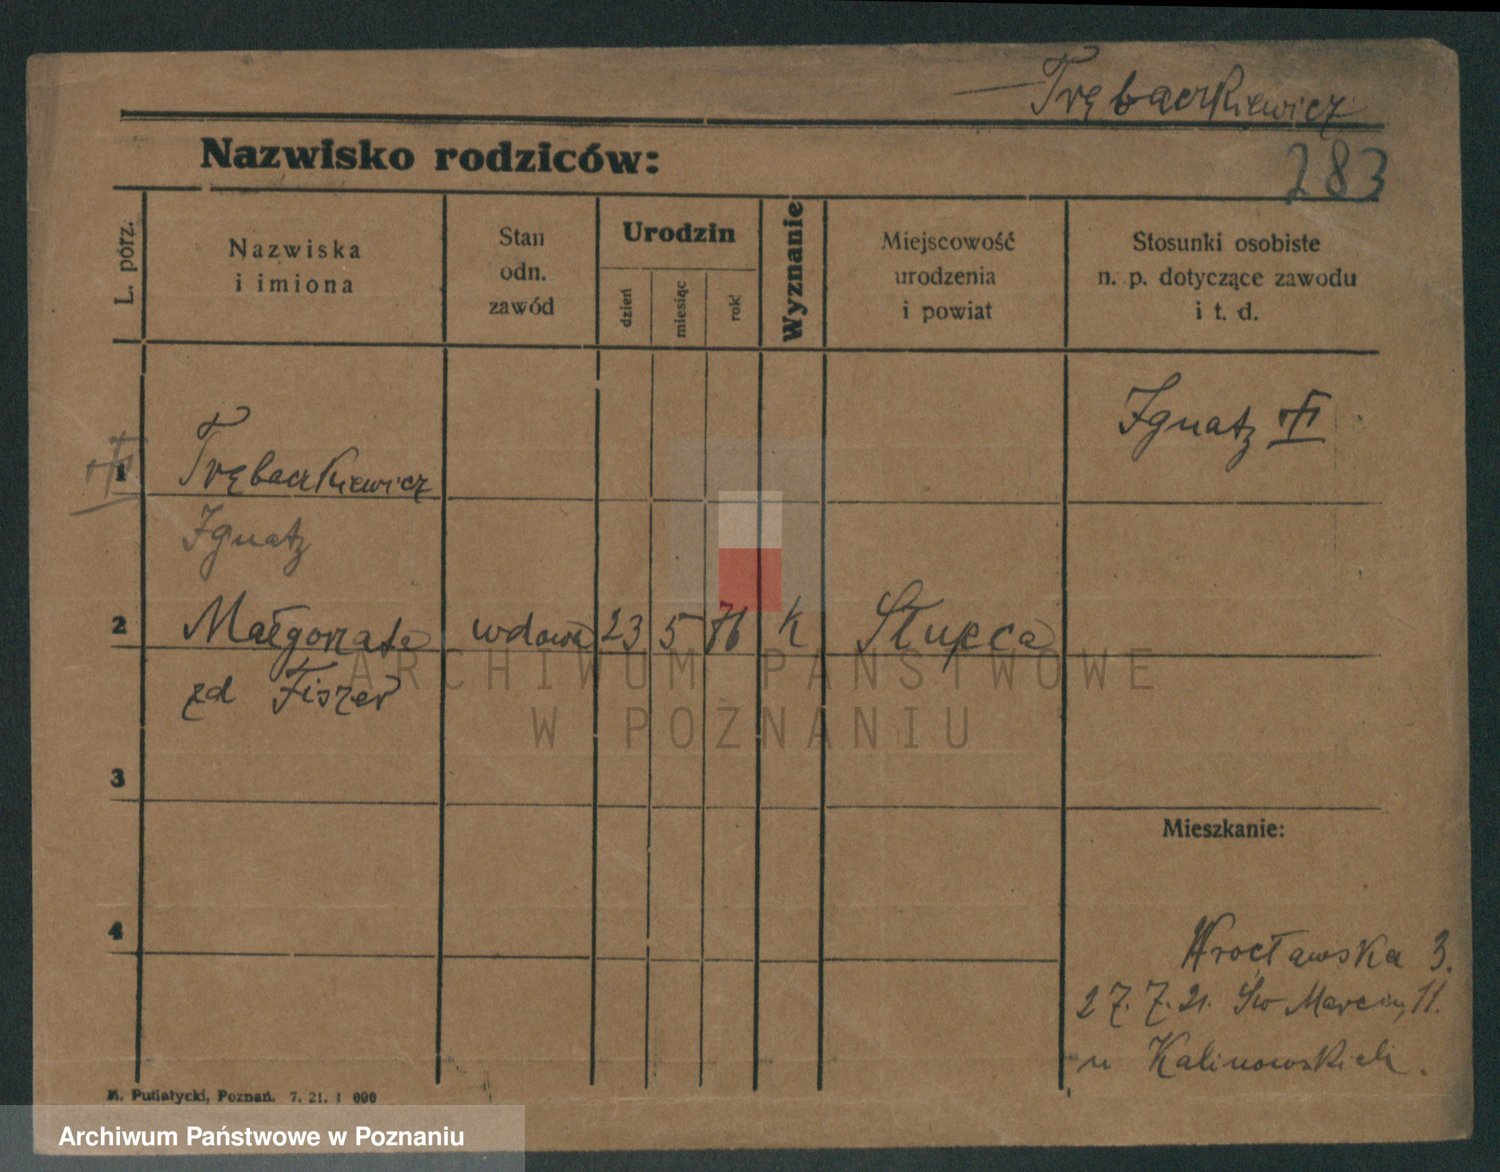 Trębaczkiewicz
Nazwisko rodziców:
283
L. pórz.
Nazwiska
i imiona
Stan
odn.
zawód
Urodzin
dzień
miesiąc
rok
Wyznanie
Miejscowość
urodzenia
i powiat
Stosunki osobiste
n. p. dotyczące zawodu
i t. d.
Ignatz
1 Trębaczkiewicz
Ignatz
2 Małgorzata wdowa 23 5 76 k Słupca
zd Fiszer
ARCHIWUM PAŃSTWOWE
W POZNANIU
3
Mieszkanie:
4
Wrocławska 3.
27. 7. 21. Św Marcin 11.
u Kalinowskich.
M. Putiatycki, Poznań. 7. 21. 1 000
Archiwum Państwowe w Poznaniu